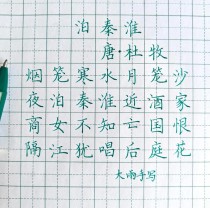 泊秦淮
唐·杜牧
烟笼寒水月笼沙
夜泊秦淮近酒家
商女不知亡国恨
隔江犹唱后庭花
大雨手写